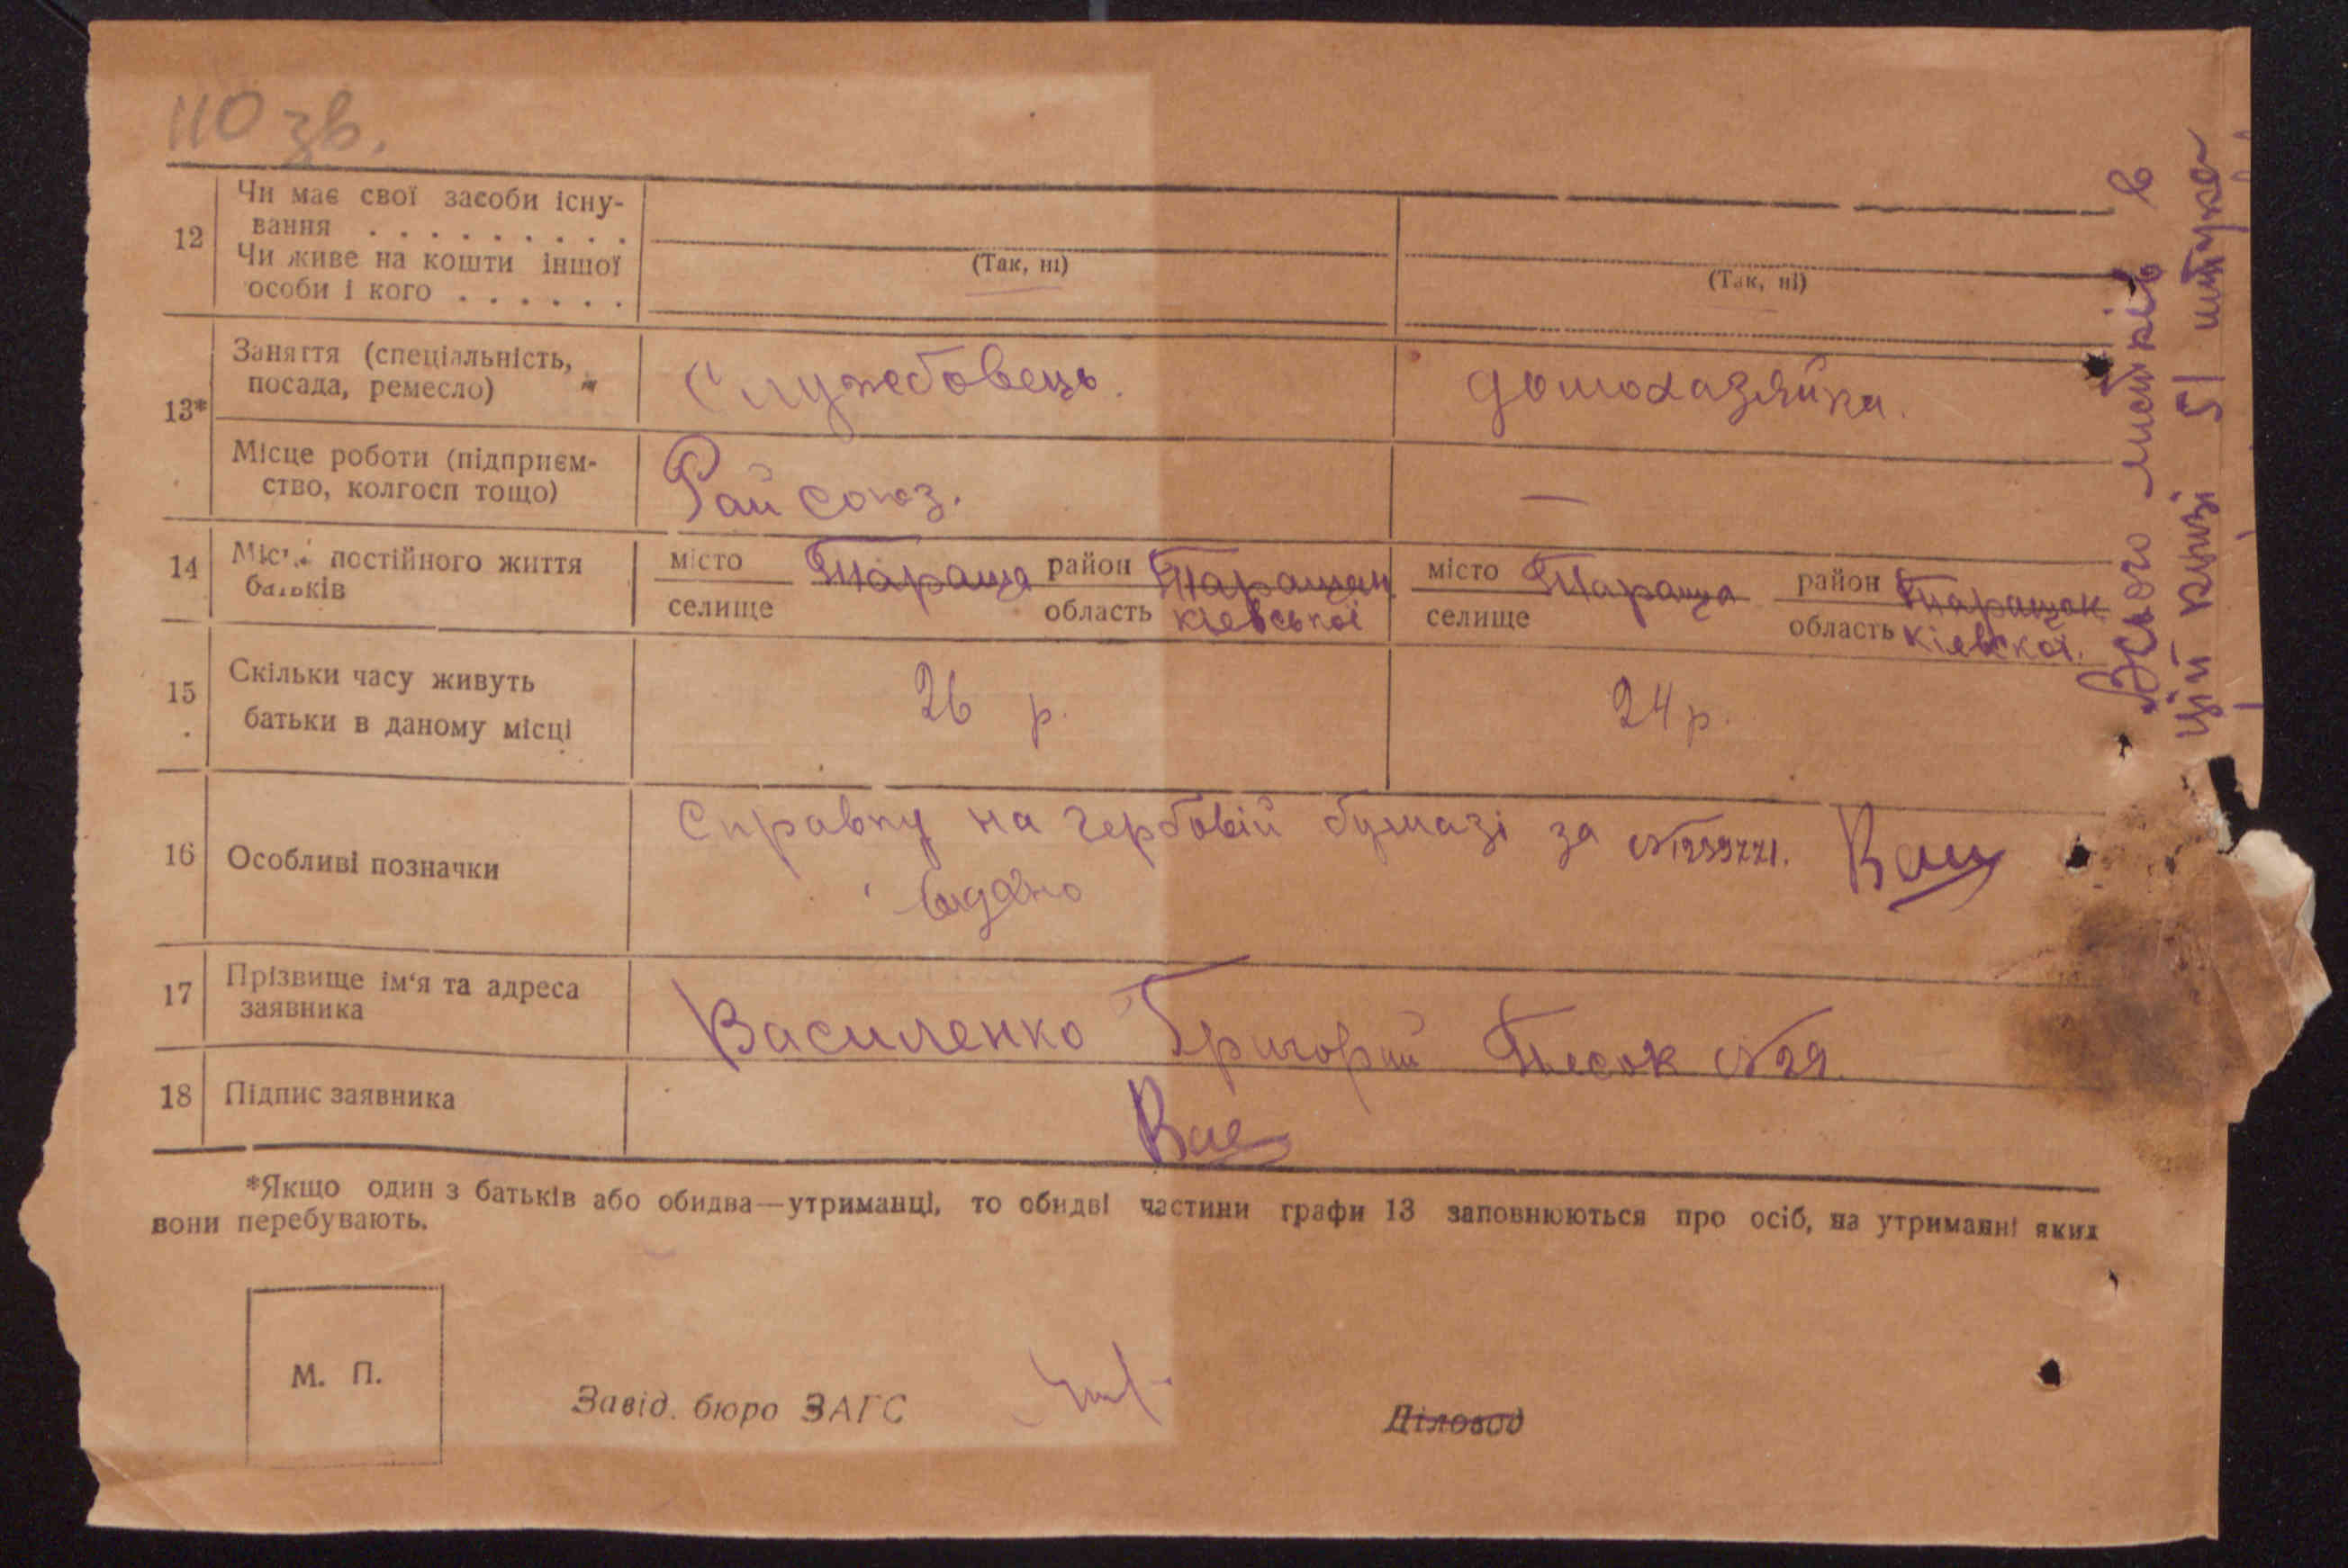 110 зв.
12 Чи має свої засоби існу-
вання . . . . . . . . .
Чи живе на кошти іншої
особи і кого . . . . . .
(Так, ні) (Так, ні)
13* Заняття (спеціальність,
посада, ремесло)
Службовець. домохазяйка.
Місце роботи (підприєм-
ство, колгосп тощо)
Райсоюз. —
14 Місце постійного життя
батьків
місто Тараща район Таращан місто Тараща район Таращан
селище область кієвської селище область кієвскої.
15 Скільки часу живуть
батьки в даному місці
26 р. 24 р.
16 Особливі позначки
Справку на гербовій бумазі за №239771. Вас
видано
17 Прізвище ім‘я та адреса
заявника
Василенко Григорий Песок №29.
18 Підпис заявника
Вас
*Якщо один з батьків або обидва—утриманці, то обидві частини графи 13 заповнюються про осіб, на утриманні яких
вони перебувають.
М. П.
Завід. бюро ЗАГС
Діловод
Всього листків в
цій книзі 51 штука